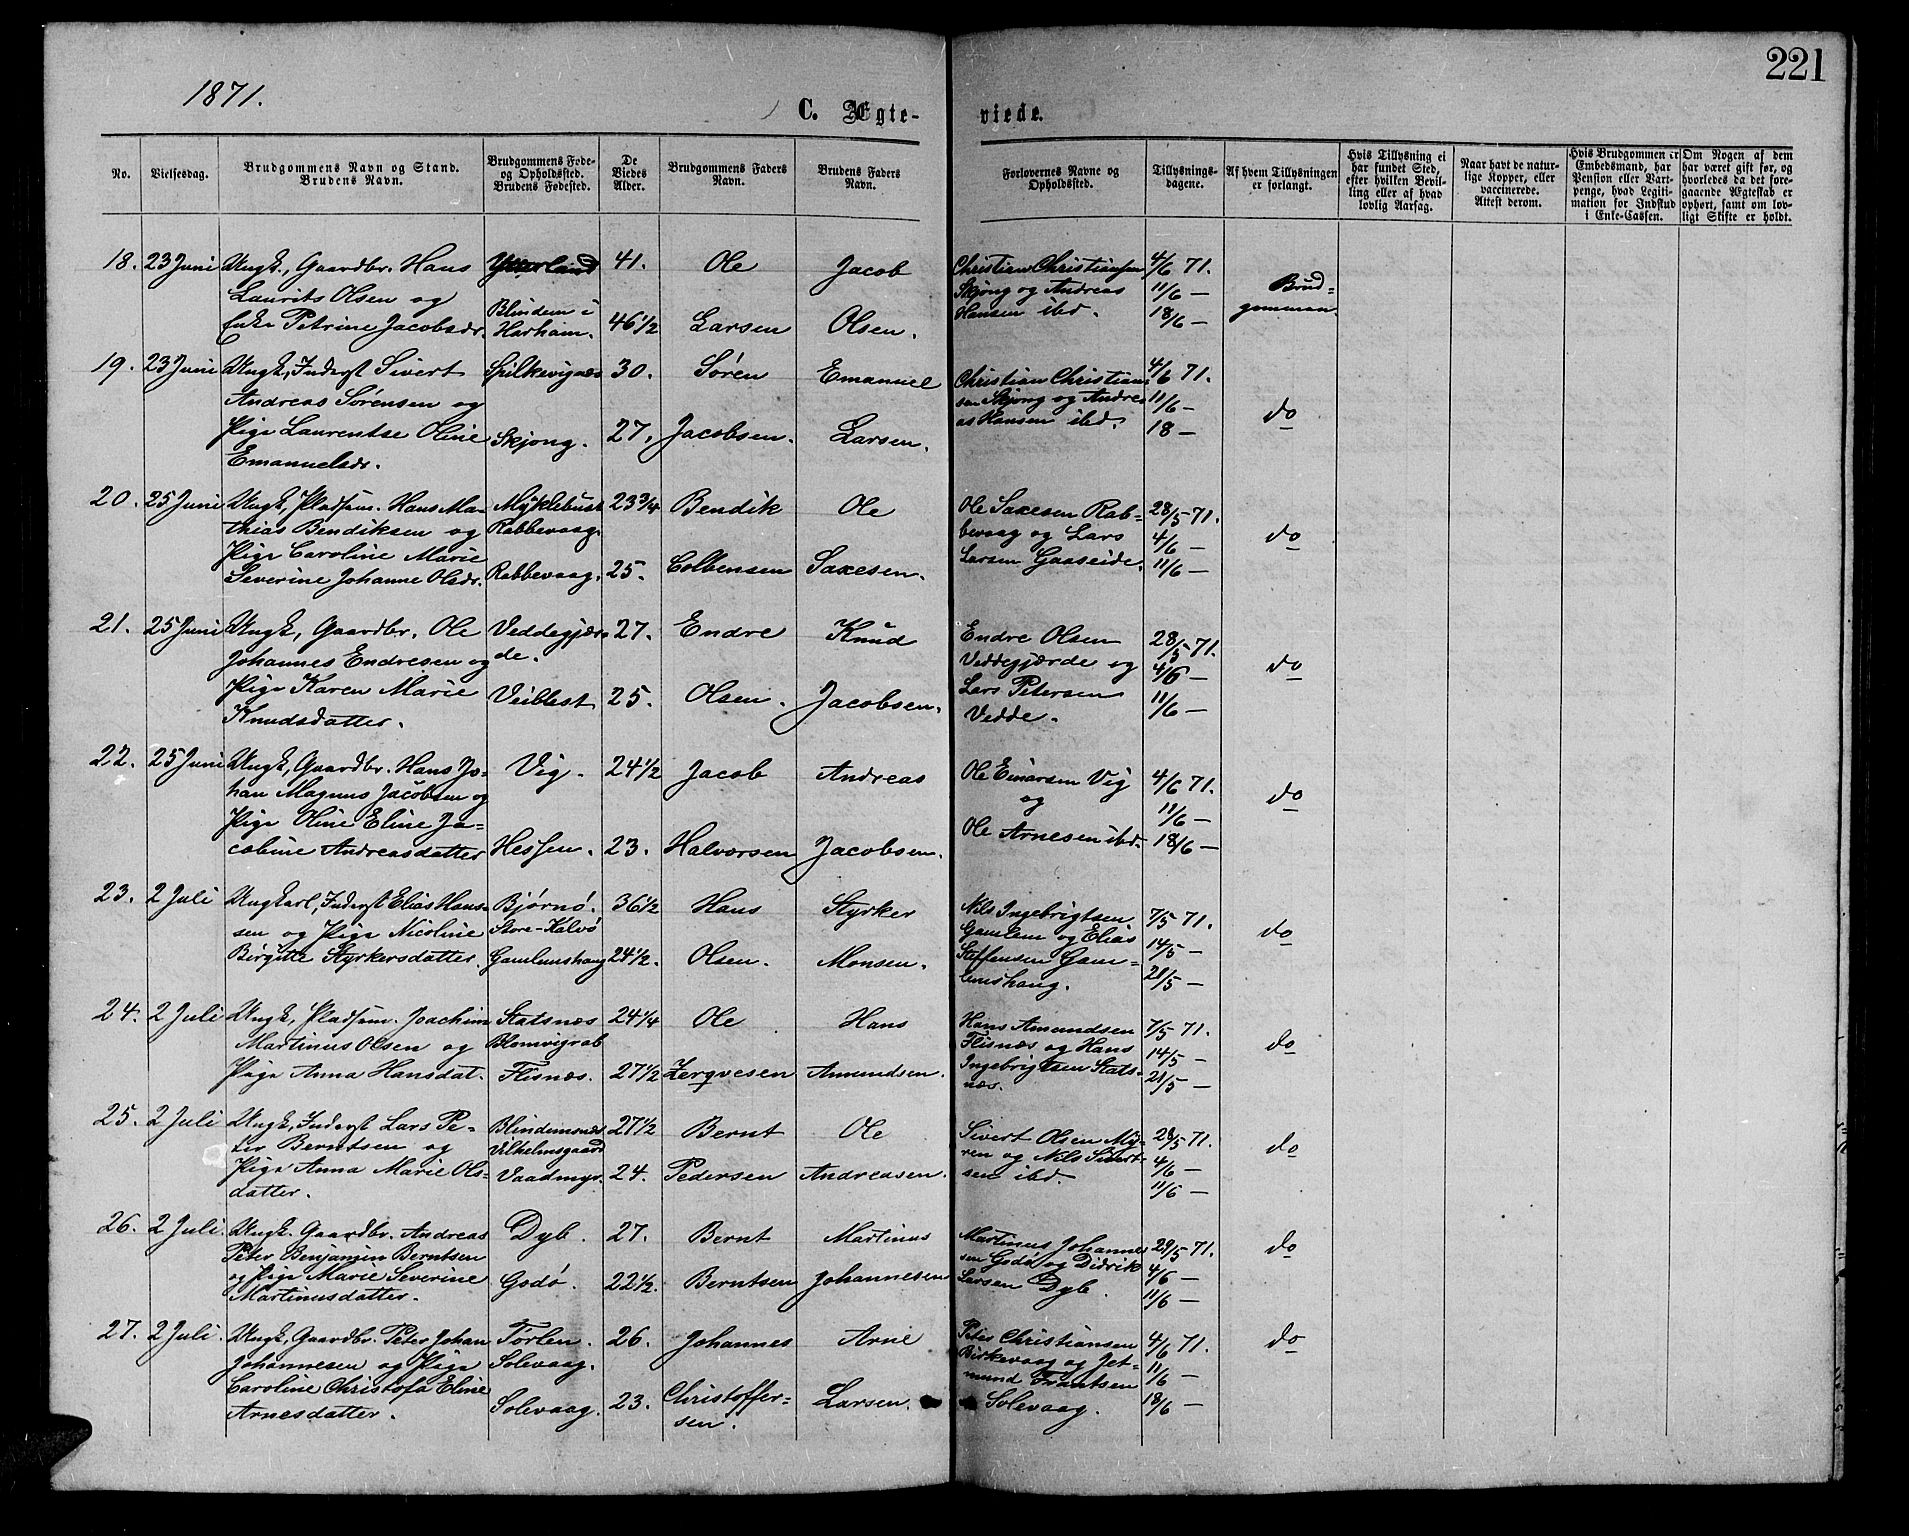 221
1871.
C. Ægte-viede.
No.
Vielsesdag.
Brudgommens Navn og Stand.
Brudens Navn.
Brudgommens Føde-
og Opholdssted.
Brudens Fødested.
De
Viedes
Alder.
Brudgommens Faders
Navn.
Brudens Faders
Navn.
Forlovernes Navne og
Opholdssted.
Tillysnings-
dagene.
Af hvem Tillysningen
er forlangt.
Hvis Tillysning ei
har fundet Sted,
efter hvilken Bevil-
ling eller af hvad
lovlig Aarsag.
Naar havt de natur-
lige Kopper, eller
vaccinerede.
Attest derom.
Hvis Brudgommen er
Embedsmand, har
Pension eller Vart-
penge, hvad Legiti-
mation for Indskud
i Enke-Cassen.
Om Nogen af dem
har været gift før, og
hvorledes da det fore-
gaaende Ægteskab er
ophørt, samt om lov-
ligt Skifte er holdt.
18. 23 Juni Ungk., Gaardbr. Hans 41. Ole Jacob Christian Christiansen 4/6 71.
Laurits Olsen og Blindem i Skjong og Andreas 11/6 — Brud-
Enke Petrine Jacobsdr. Harham. 46 1/2 Larsen Olsen. Hansen ibd. 18/6 — gommen.
19. 23 Juni Ungk, Inderst Sivert Spilkevignæs 30. Søren Emanuel Christian Christian- 4/6 71.
Andreas Sørensen og sen Skjong og Andre- 11/6 — do
Pige Laurentse Oline Skjong. 27. Jacobsen. Larsen. as Hansen ibd. 18 —
Emanuelsdr.
20. 25 Juni Ungk, Pladsm. Hans Ma- Myklebust 23 3/4 Bendik Ole Ole Saxesen Rab- 28/5 71.
thias Bendiksen og Rabbevaag. bevaag og Lars 4/6 — do
Pige Caroline Marie Larsen Gaaseide. 11/6 —
Severine Johanne Olsdr. Rabbevaag. 25. Colbensen Saxesen.
21. 25 Juni Ungk, Gaardbr. Ole Veddegjær- 27. Endre Knud Endre Olsen 28/5 71.
Johannes Endresen og de. Veddegjærde og 4/6 — do
Pige Karen Marie Veiblest 25. Olsen. Jacobsen. Lars Petersen 11/6 —
Knudsdatter. Vedde.
22. 25 Juni Ungk, Gaardbr. Hans Jo- Vig. 24 1/2 Jacob Andreas Ole Einarsen Vig 4/6 71.
han Magnus Jacobsen og og 11/6 — do
Pige Oline Eline Ja- Ole Arnesen ibd. 18/6 —
cobine Andreasdatter Hessen. 23. Halvorsen Jacobsen.
23. 2 Juli Ungkarl, Inderst Elias Hans- Bjørnø. 36 1/2 Hans Styrker Nils Ingebrigtsen 7/5 71.
sen og Pige Nicoline Store-Kalvø Gamlem og Elias 14/5 — do
Birgitte Styrkersdatter. Gamlemshaug 24 1/2. Olsen. Monsen. Steffensen Gam- 21/5 —
lemshaug.
24. 2 Juli Ungk, Pladsm. Joachim Statsnæs 24 1/4 Ole Hans Hans Amundsen 7/5 71.
Martinus Olsen og Blomvigrab Flisnæs og Hans 14/5 — do
Pige Anna Hansdat. Flisnæs. 27 1/2 Zergvesen Amundsen. Ingebrigtsen Stats- 21/5 —
næs.
25. 2 Juli Ungk, Inderst Lars Pe- Blindemsnæs 27 1/2 Bernt Ole Sivert Olsen My- 28/5 71.
ter Berntsen og Vilhelmsgaard ren og Nils Sivert- 4/6 — do
Pige Anna Marie Ols- Vaadmyr. 24. Pedersen Andreasen. sen ibd. 11/6 —
datter.
26. 2 Juli Ungk. Gaardbr. Andreas Dyb. 27. Bernt Martinus Martinus Johannes- 29/5 71. do
Peter Benjamin Berntsen sen Godø og Didrik 4/6 —
og Pige Marie Severine Godø. 22 1/2. Berntsen Johannesen Larsen Dyb. 11/6 —
Martinusdatter.
27. 2 Juli. Ungk, Gaardbr. Peter Johan Tørlen. 26. Johannes Arne Peter Christiansen 4/6 71. do
Johannesen og Pige Solevaag. Birkevaag og Jet- 11/6 —
Caroline Christofa Eline Solevaag. 23. Christoffer- Larsen. mund Frantsen 18/6 —
Arnesdatter. sen. Solevaag.